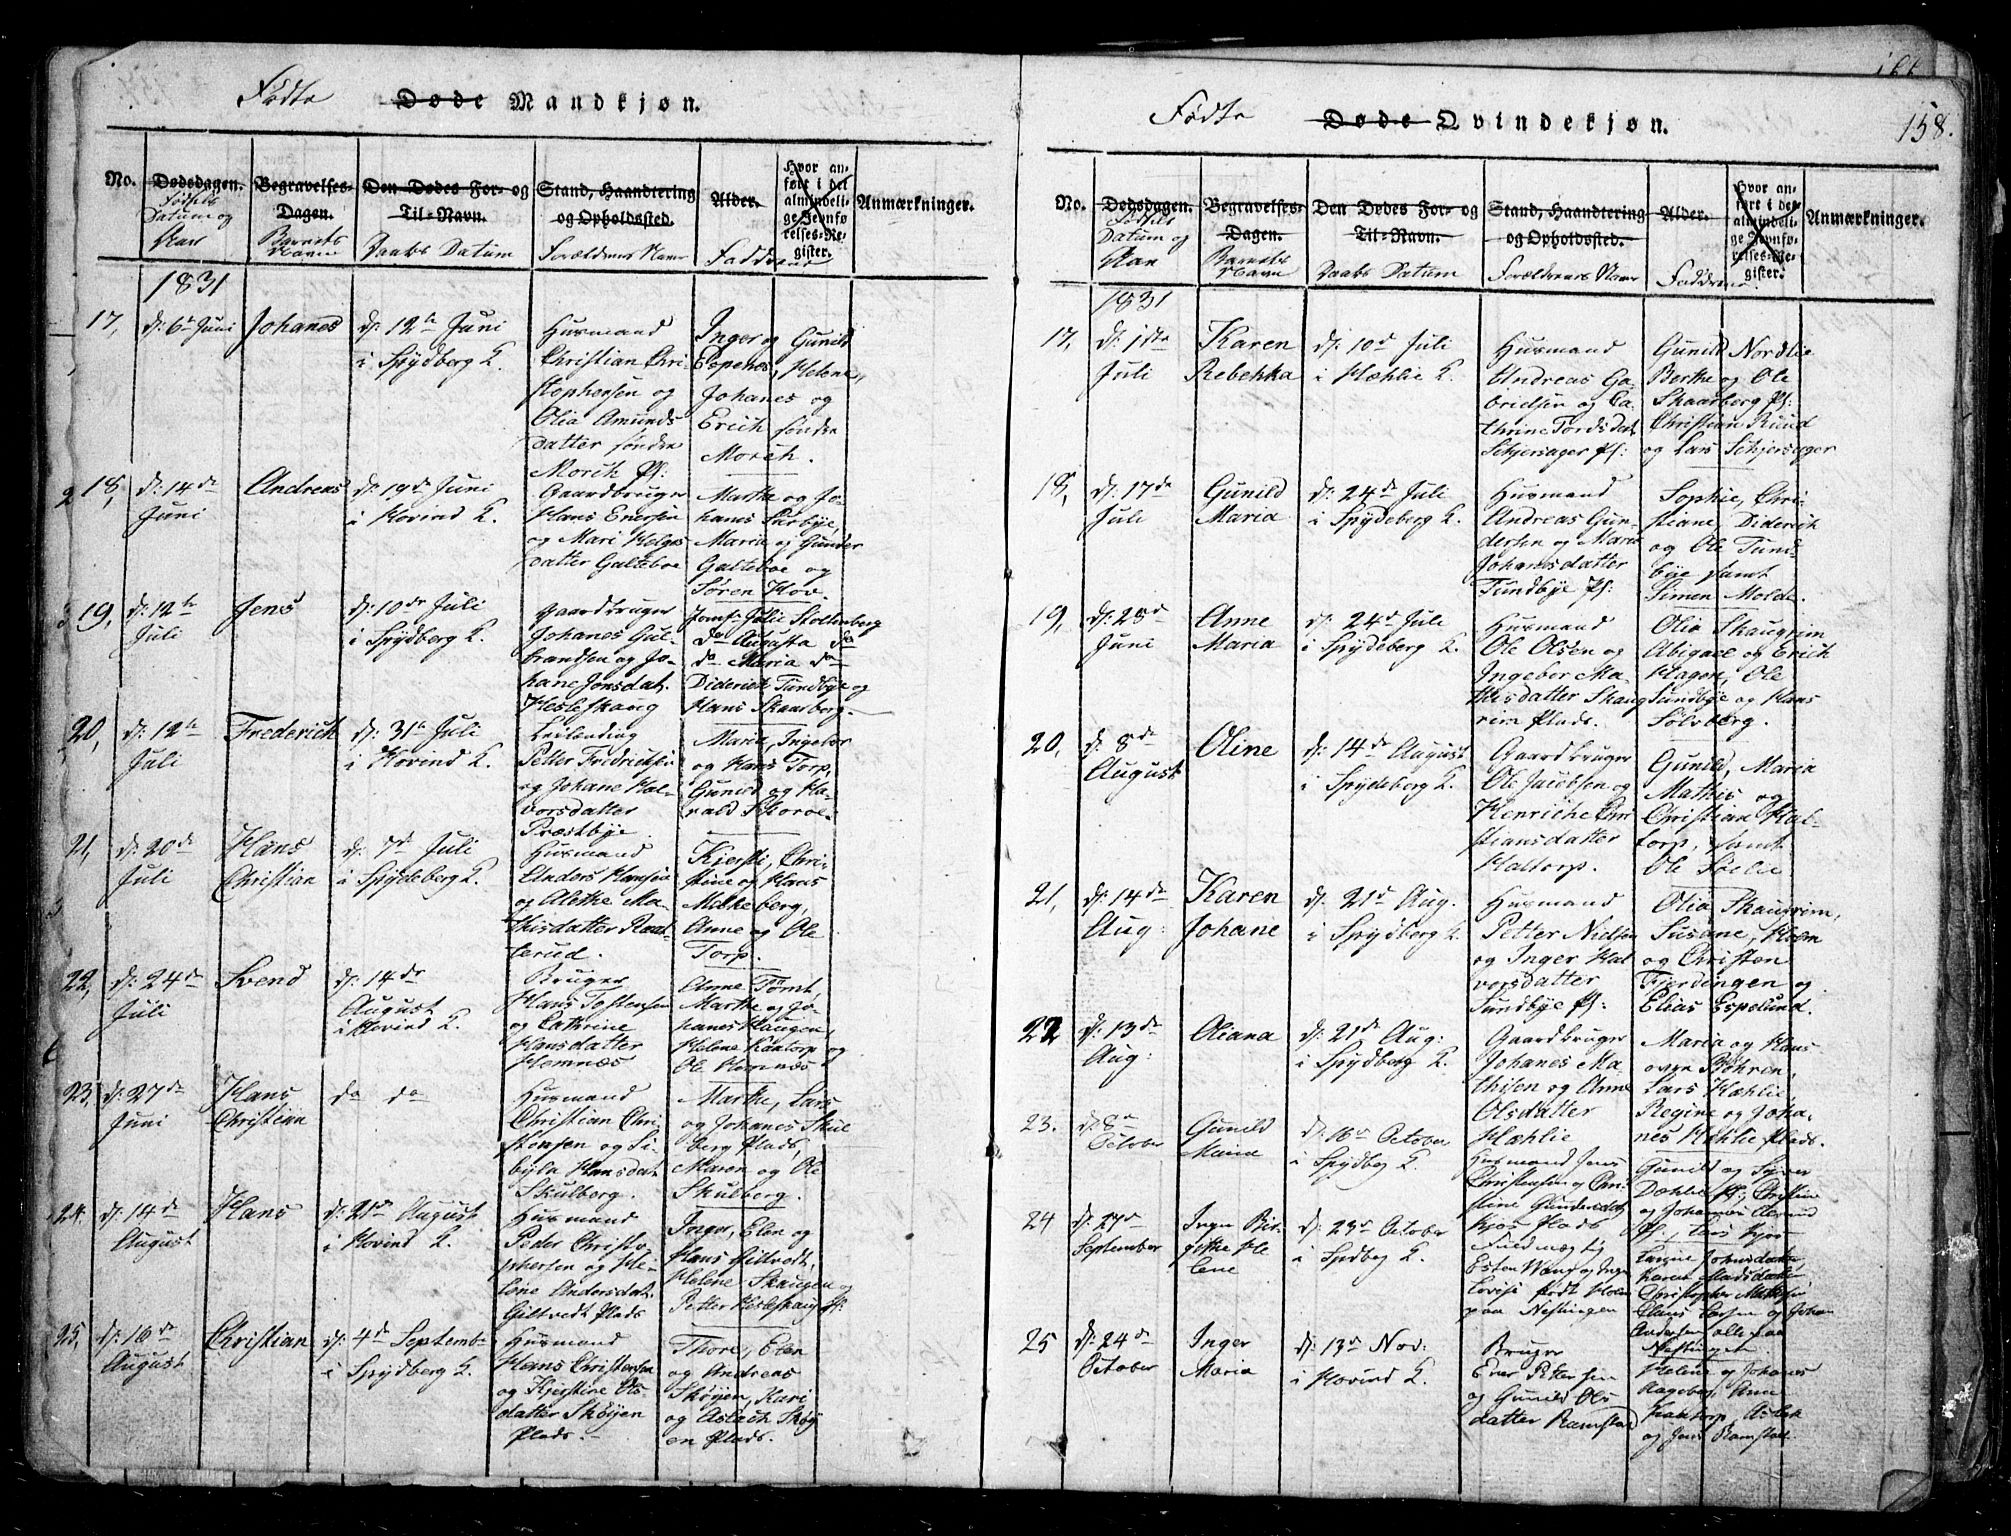 Fødte Døde Mandkjøn.
No.
Dødsdagen.
Fødsels
Datum og
Aar
Begravelses-
Dagen.
Barnets
Navn
Den Dødes For- og
Til-Navn.
Daabs Datum
Stand, Haandtering
og Opholdssted.
Forældrenes Navn
Alder.
Faddrene
Hvor an-
ført i det
almindeli-
ge Jevnfø
relses-Re-
gister.
Anmærkninger.
1831
17,
d: 6te Juni
Johanes
d: 12te Juni
i Spydberg K.
Husmand
Christian Chri-
stophersen og
Olia Amunds
datter søndre
Morik Pl:
Inger og Gunild
Espenes, Helene,
Johanes og
Erich søndre
Morch.
18,
d: 14de
Juni
Andreas
d: 19de Juni
i Hovind K.
Gaardbruger
Hans Enersen
og Mari Helges
datter Galteboe
Marthe og Jo-
hanes Lurbye,
Maria og Gunder
Galteboe og
Søren Hov.
19,
d: 12te
Juli
Jens
d: 10de Juli
i Spydberg K.
Gaardbruger
Johanes Gul-
brandsen og Jo-
hane Jonsdat.
Hesleskaug
Jomf: Julie Stoltenberg
do Augusta do
do Maria do
Diderich Tundbye og
Hans Skaarberg.
20,
d: 12te
Juli
Frederich
d: 31te Juli
i Hovind K.
Petter Fredrichsen
og Johane Hal-
vorsdatter
Præstbye
Maria, Ingebor
og Hans Torp,
Gunild og Ha-
rald Skoroe.
21,
d: 20de
Juli
Hans
Christian
d: 7de Juli
i Spydeberg K.
Husmand
Anders Hansen
og Alethe Ma-
thisdatter Raad-
lerud.
Kjersti, Chri-
stine og Hans
Molkeberg,
Anne og Ole
Torp.
22,
d: 24de
Juli
Svend
d: 14de
August
i Hovind K.
Bruger
Hans Tostensen
og Cathrine
Hansdatter
Hemnæs
Anne Tomt,
Marthe og Jo-
hanes Haugen,
Helene Kantorp og
Ole Hemnæs
23,
d: 27de
Juni
Hans
Christian
do do
Husmand
Christian Chri-
stensen og Si-
bylla Hansdat.
Skulberg.
Marthe, Lars
og Johanes Skul
berg Plads,
Maren og Ole
Skulberg.
24.
d: 14de
August
Hans
d: 21de August
i Hovind K.
Husmand
Peder Christo-
phersen og He-
lene Andersdat.
Giltvedt Plads
Inger, Elen og
Hans Giltvedt,
Helene Skaugen og
Petter Hesleskaug Pl:
25,
d: 16de
August
Christian
d: 4de Septemb-
i Spydberg K.
Husmand
Hans Christensen
og Kjerstine Ols
datter Skøyen
Plads.
Thore, Elen
og Andreas
Skøyen, Kari
og Aslach Skøy
en Plads.
Fødte Døde Qvindekjøn.
158.
No.
Dødsdagen.
Fødsels
Datum og
Aar
Begravelses-
Dagen.
Barnets
Navn
Den Dødes For- og
Til-Navn.
Daabs Datum
Stand, Haandtering
og Opholdssted.
Forældrenes Navn
Alder.
Faddrene.
Hvor an-
ført i det
almindeli-
ge Jevnfø-
relses-Re-
gister.
Anmærkninger.
1831
17,
d: 1ste
Juli
Karen
Rebekka
d: 10de Juli
i Hæhlie K.
Husmand
Andreas Ga-
brielsen og Ca-
thrine Tordsdat.
Schjersager Pl:
Gunild Nordlie
Berthe og Ole
Skaarberg Pl:
Christian Ruud
og Lars Schjersager
18,
d: 17de
Juli
Gunild
Maria
d: 24de Juli
i Spydeberg K.
Husmand
Andreas Gun-
dersen og Maria
Johanesdatter
Tundbye Pl:
Sophie, Chri-
stiane, Diderich
og Ole Tund-
bye samt
Simen Molde.
19,
d: 25de
Juni
Anne
Maria
d: 24de Juli
i Spydeberg K.
Husmand
Ole Olsen og
Ingeber Ma-
thisdatter Skaug
rim Plads.
Olia Skaugrim
Abigael og Erich
Hagen, Ole
Sundbye og Hans
Solvberg.
20,
d: 8de
August
Oline
d: 14de August
i Spydeberg K.
Gaardbruger
Ole Jacobsen og
Henriche Chri-
stiansdatter
Haltorp.
Gunild, Maria
Mathis og
Christian Hal-
torp, samt
Ole Solie
21,
d: 14de
Aug:
Karen
Johane
d: 21de Aug.
i Spydberg K.
Husmand
Petter Nielsen
og Inger Hal
vorsdatter
Sundbye Pl:
Olia Skaugrim,
Susane, Holm
og Christen
Fjerdingen og
Elias Espelund.
22
d: 13de
Aug:
Oliana
d: 21de Aug:
i Spydberg K.
Gaardbruger
Johanes Ma
thisen og Anne
Olsdatter
Hæhlie
Maria og Hans
øvre Bøhren,
Lars Hæhlie,
Regine og Joha-
nes Hæhlie Plads.
23.
d: 8de
October
Gunild
Maria
d: 16de October
i Spydbeg K.
Husmand Jens
Christensen og Chri-
stine Gundersdat.
Kjos Plads
Gunild og Syver
Dæhlie Pl: Christine
og Johannes
Pl., Lars Kjos
24
d: 27de
September
Inga Bir-
githe He
lene
d: 23de October
i Spdbeg K.
Fuldmægtig
Esten Wang og Inga
Lovise født Holm
paa Nestingen
Johnsdatter
Karen Madsdatter
Christopher Mathisen
Claus Larsen og Johan
Andersen alle paa
Nestinget.
25
d: 24de
October
Inger
Maria
d: 13de Nov:
i Hovind K.
Bruger
Ener Petersen
og Gunild Ols
datter Ramstad
Helene og Johanes
Hageberg, Anne
Kantorp, Aslak
og Jens Ramstad.